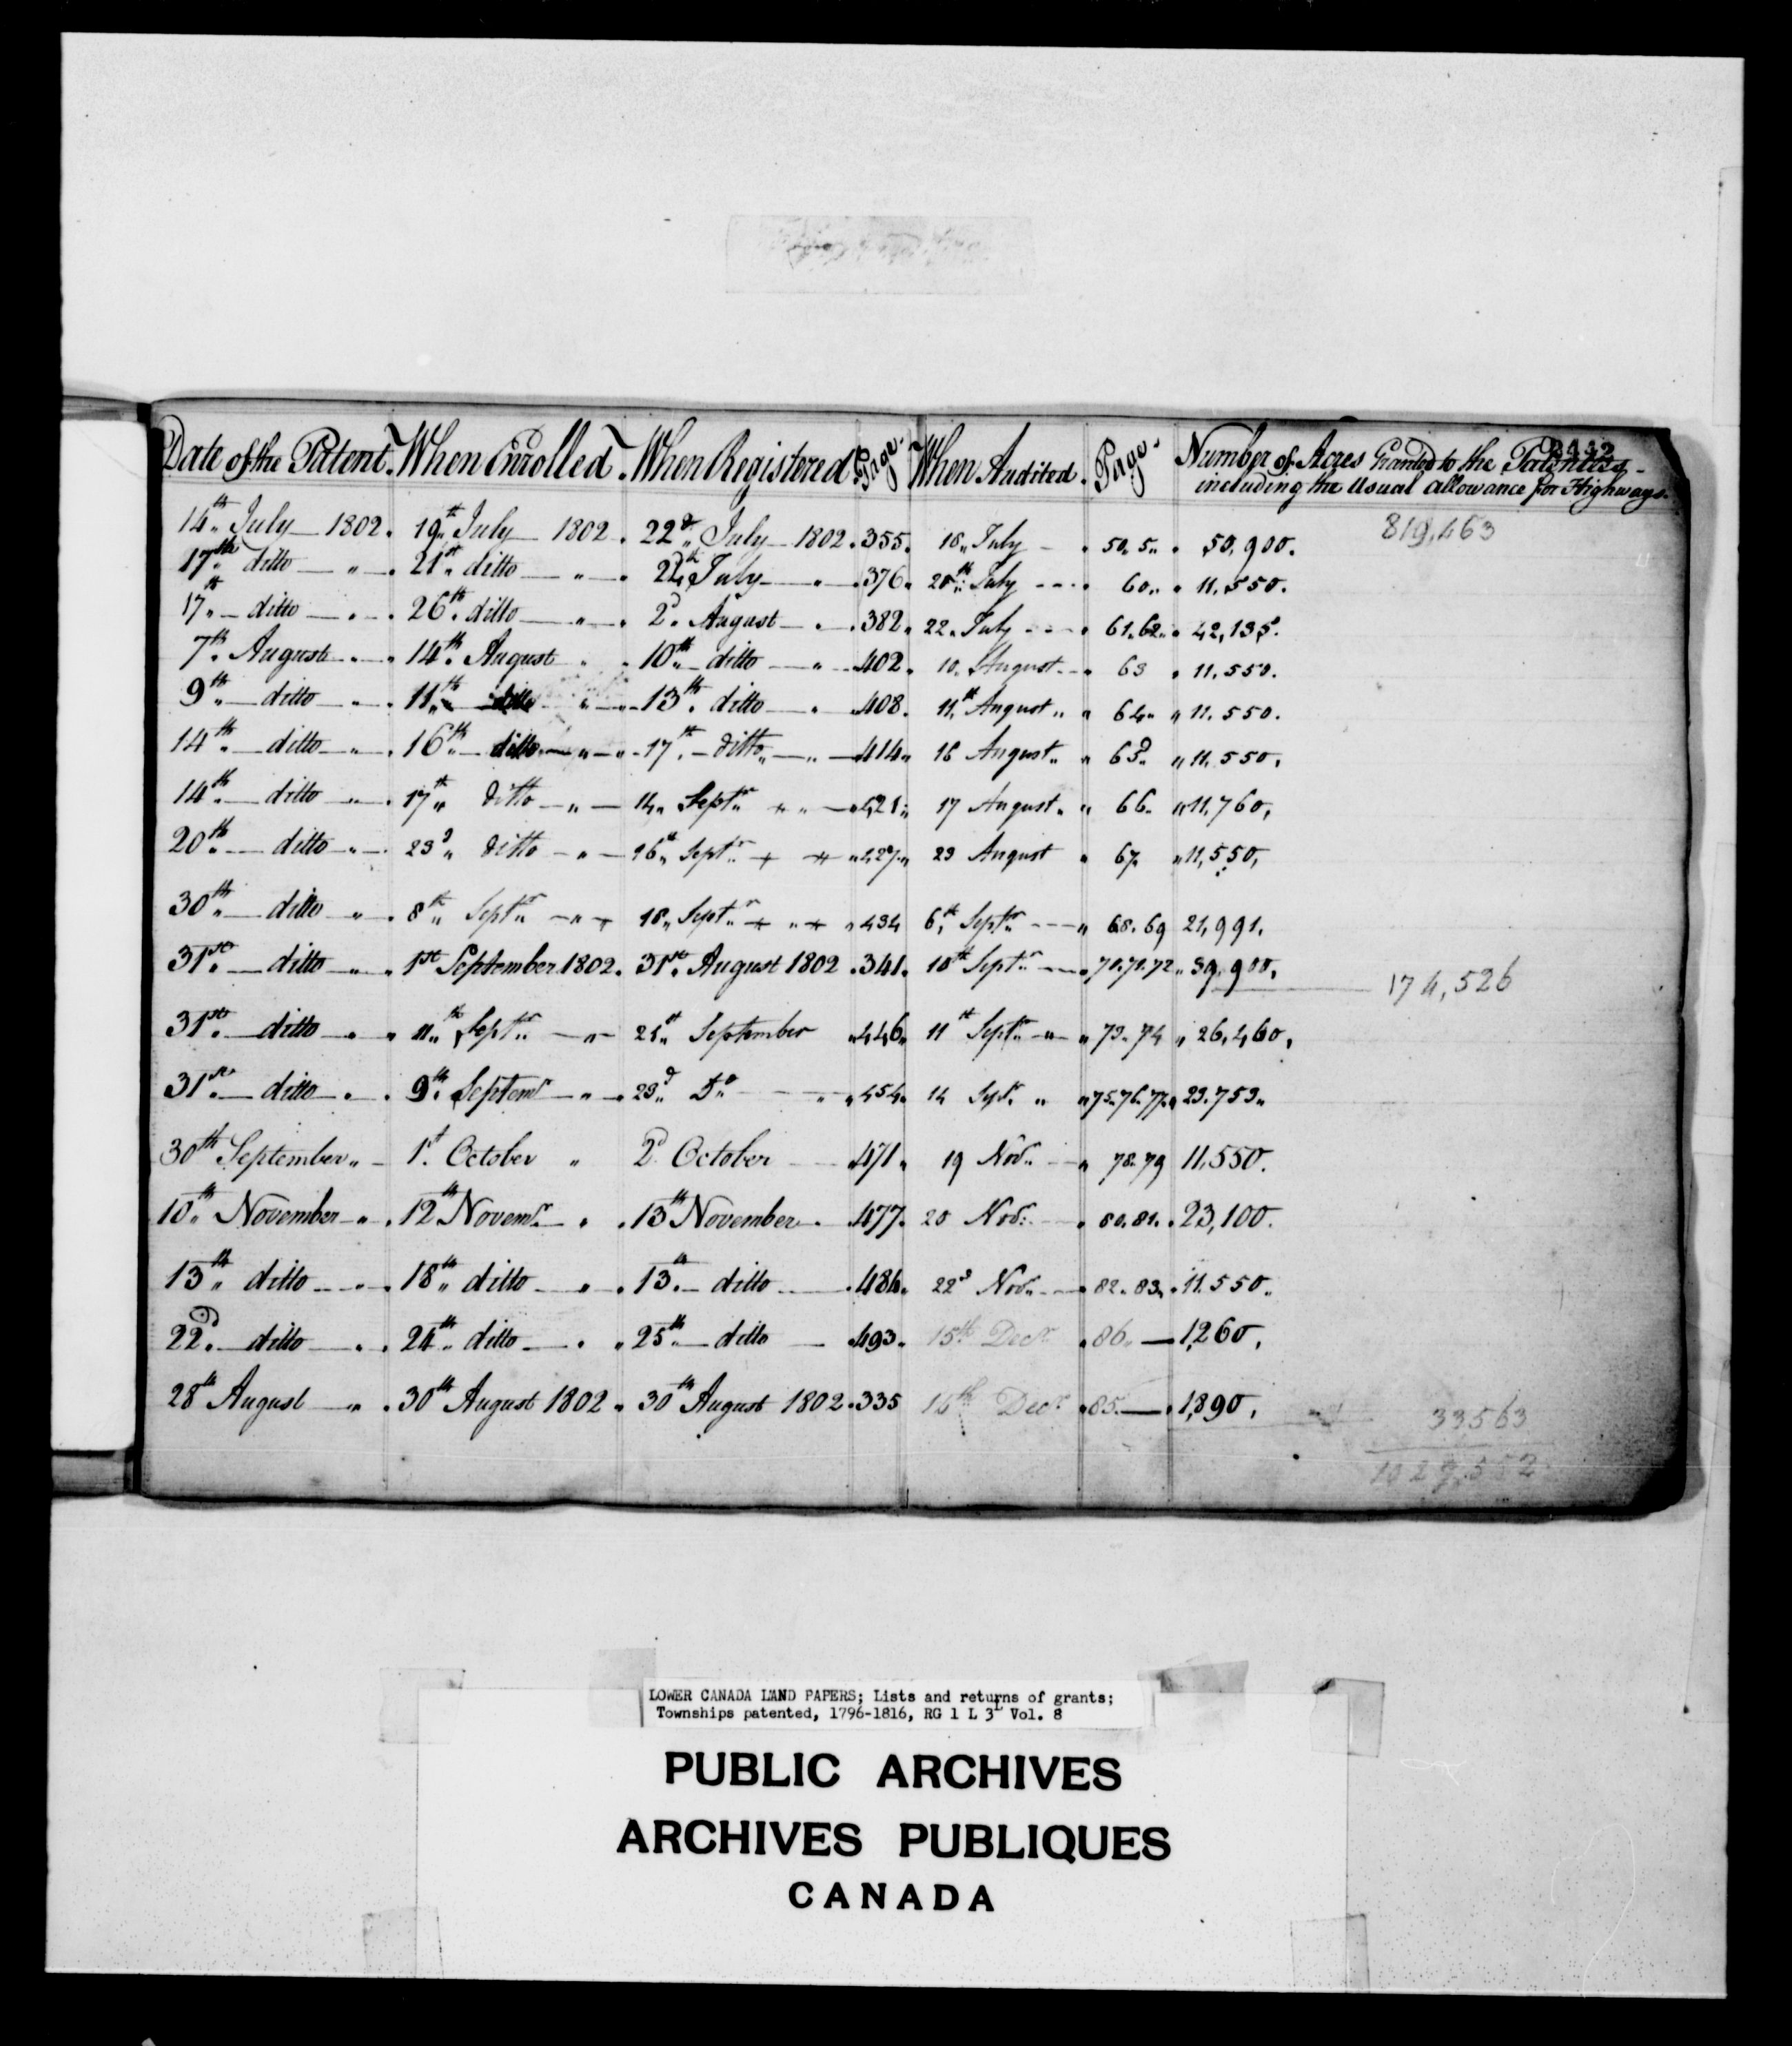 2442
Date of the Patent. When Enrolled. When Registered. Page. When Audited. Page. Number of Acres Granted to the Patentees
including the Usual allowance for Highways.
819,463
14th July 1802. 19th July 1802. 22d July 1802. 355. 18 July 50. 5 50,900.
17th ditto " 21st ditto " July " 376. 20th July 60 11,550.
17th ditto " 26th ditto " 2d August 382. 22 July 61.62 42,135.
7th August " 14th August " 10th ditto " 402. 10 August 63 11,550.
9th ditto " 11th ditto " 13th ditto " 408. 11th August 64 11,550.
14th ditto " 16th ditto " 17th ditto " 414 16 August 65 11,550.
14th ditto " 17th ditto " 14 Septr " 421 17 August 66 11,760.
20th ditto " 23d ditto " 16th Septr " 427 23 August 67 11,550.
30th ditto " 8th Septr " 18 Septr " 434 6th Septr 68.69 21,991.
31st ditto " 1st September 1802. 31st August 1802. 341. 10th Septr 70.71.72 39,900.
174,526
31st ditto " 11th Septr " 21st September 446 11th Septr " 73.74 26,460.
31st ditto " 9th Septemr " 23d Do " 454 14 Sepr " 75.76.77 23.753
30th September " 1st October " 2d October 471 19 Novr 78.79 11,550.
10th November " 12th Novemr " 13th November 477 20 Novr 80.81. 23,100.
13th ditto " 18th ditto " 13th ditto 484 22d Novr 82.83 11.550
22d ditto " 24th ditto " 25th ditto 493 15th Decr 86. 1,260.
28th August " 30th August 1802 " 30th August 1802. 335 Decr 85. 1,890.
33563
LOWER CANADA LAND PAPERS; Lists and returns of grants;
Townships patented, 1796-1816, RG 1 L 3L Vol. 8
PUBLIC ARCHIVES
ARCHIVES PUBLIQUES
CANADA